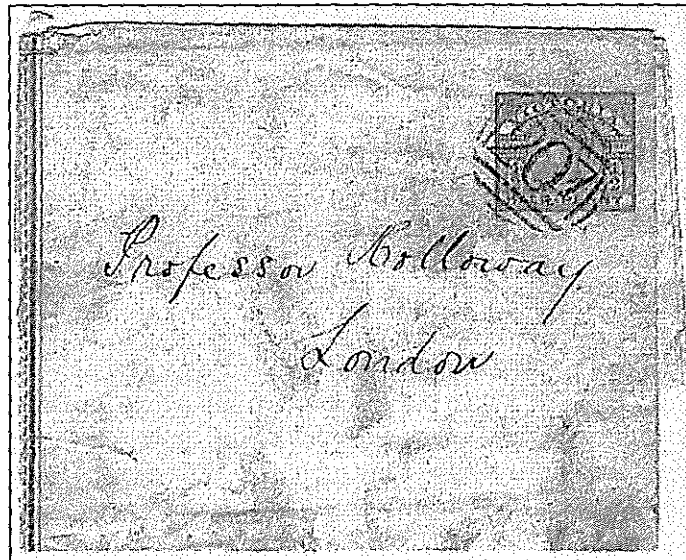 97
Professor Holloway
London